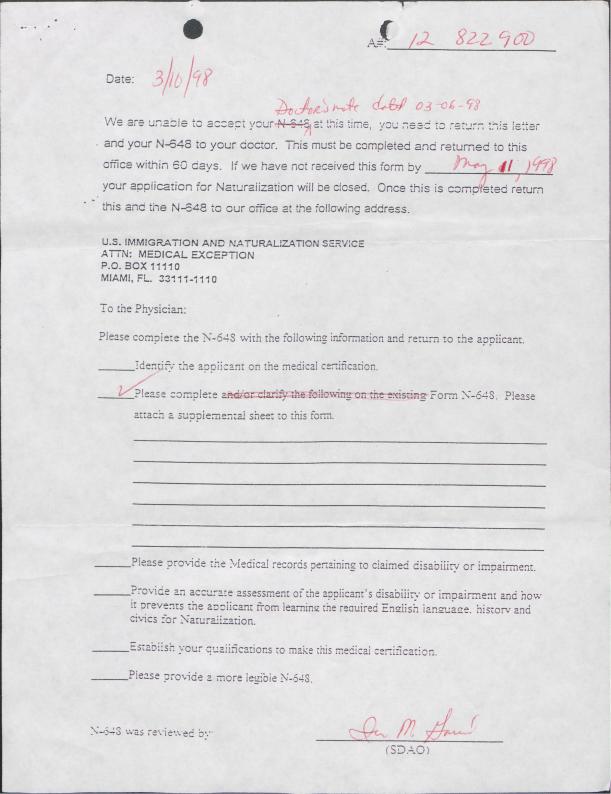 A#: 12 822 900
Date: 3/10/98
Doctor's note dated 03-06-98
We are unable to accept your N-648 at this time, you need to return this letter
and your N-648 to your doctor. This must be completed and returned to this
office within 60 days. If we have not received this form by May 11, 1998
your application for Naturalization will be closed. Once this is completed return
this and the N-648 to our office at the following address.
U.S. IMMIGRATION AND NATURALIZATION SERVICE
ATTN: MEDICAL EXCEPTION
P.O. BOX 11110
MIAMI, FL. 33111-1110
To the Physician:
Please complete the N-648 with the following information and return to the applicant.
Identify the applicant on the medical certification.
✓ Please complete and/or clarify the following on the existing Form N-648. Please
attach a supplemental sheet to this form.
Please provide the Medical records pertaining to claimed disability or impairment.
Provide an accurate assessment of the applicant's disability or impairment and how
it prevents the applicant from learning the required English language, history and
civics for Naturalization.
Establish your qualifications to make this medical certification.
Please provide a more legible N-648.
N-648 was reviewed by:
(SDAO)